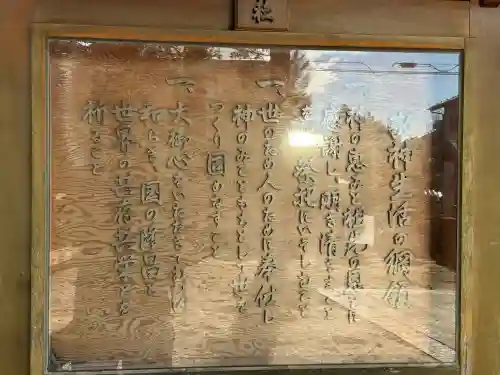 社
敬神生活の綱領
一、神の恵みと祖先の恩とに
感謝し、明き清きまことを
以て祭祀にいそしむこと
一、世のため人のために奉仕し
神のみこともちとして世を
つくり固め成すこと
一、大御心をいただきてむつび
和らぎ、国の隆昌と
世界の共存共栄とを
祈ること